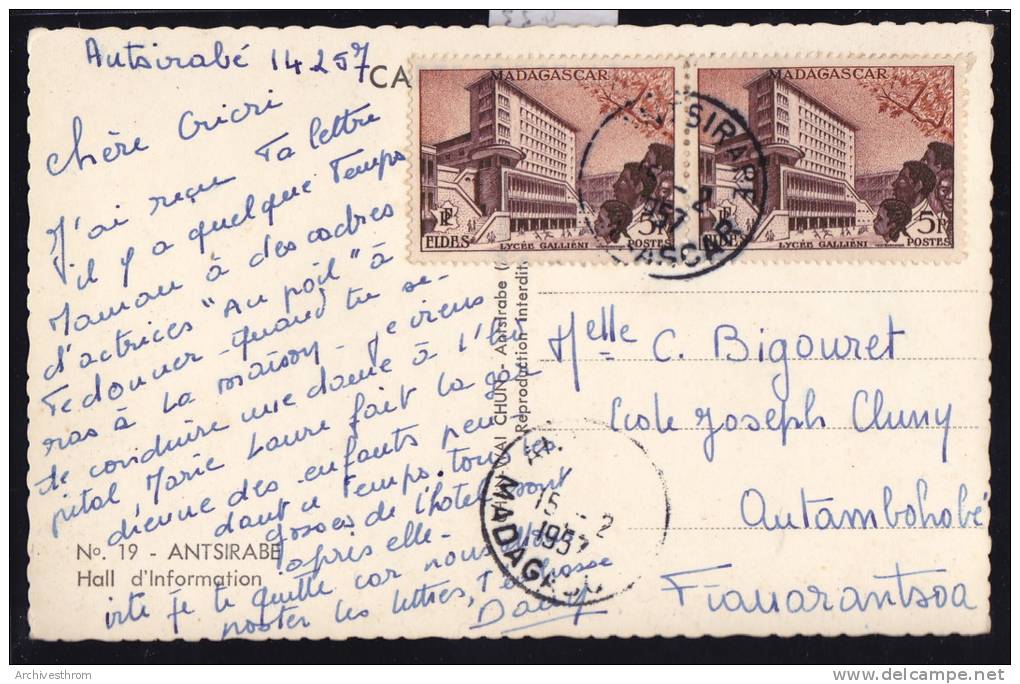 Antsirabé 14 2 57
CA
Chère Cricri
J'ai reçu Ta lettre
il y a quelque Temps
Maman à des cadres
d'actrices "Au poil" à
Te donner - Quand tu se-
ras à La maison - Je viens
de conduire une dame à L'hô
pital Marie Laure fait La gar
dienne des enfants pen-
dant ce Temps. Tous les
gosses de l'hôtel sont
après elle -
Je te quitte car nous allons
poster les lettres,
MADAGASCAR
MADAGASCAR
RF
FIDES
LYCÉE GALLIÉNI
5F
POSTES
FIDES
LYCÉE GALLIÉNI
5F
POSTES
ANTSIRABE
15 - 2
1957
MADAGASCAR
CHUN - Antsirabe
Reproduction Interdite
Melle C. Bigouret
Ecole Joseph Cluny
Antambohobé
Fianarantsoa
15 - 2
1957
MADAGASC
No. 19 - ANTSIRABE
Hall d'Information
Archivesthrom
www.delcampe.net